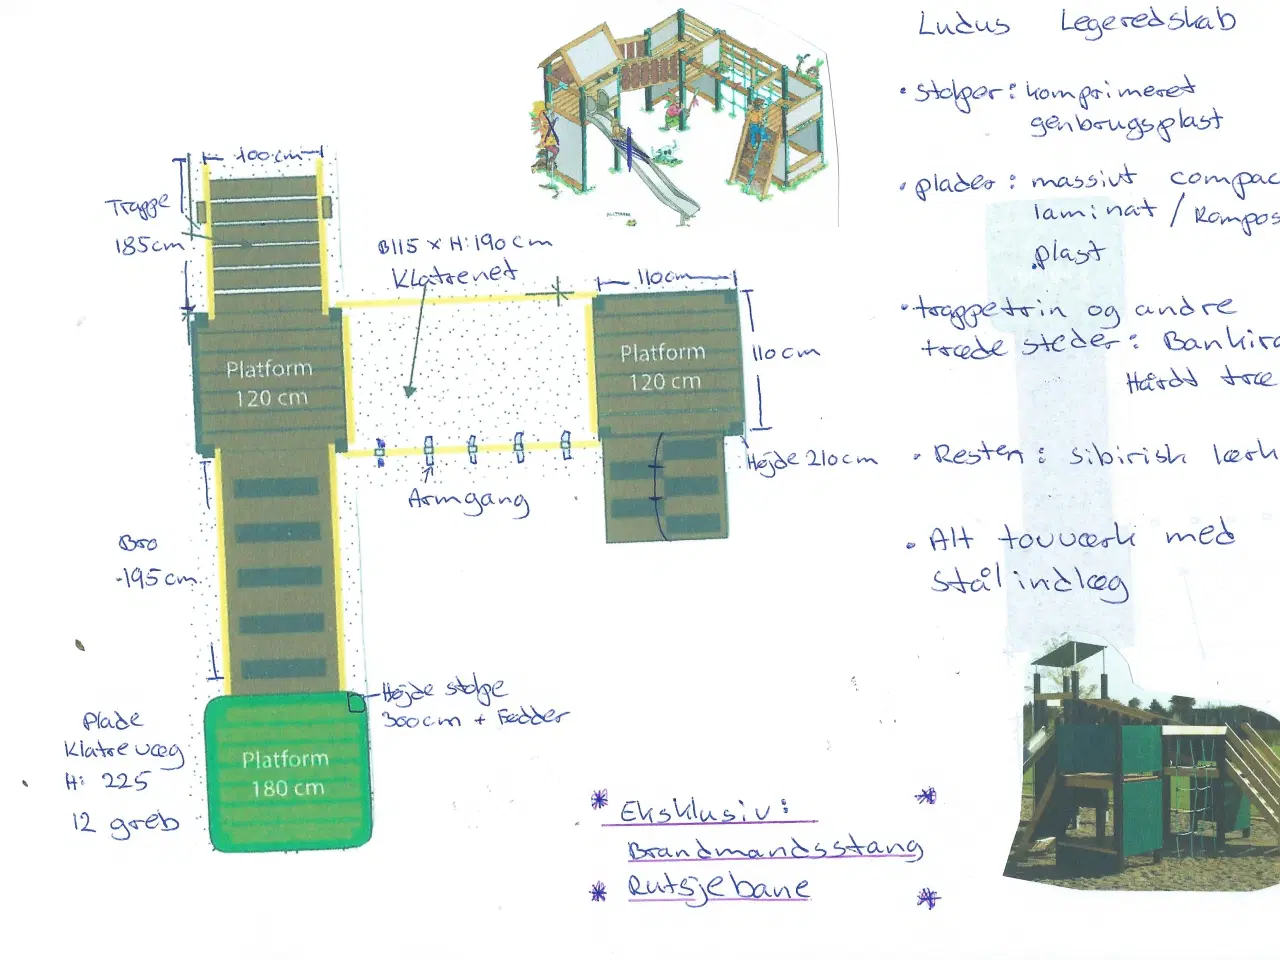 Ludus Legeredskab
• stolper: komprimeret
genbrugsplast
• plader: massivt compac
laminat / Kompos
plast
• trappetrin og andre
træde steder: Bankira
Hårdt træ
• Resten: sibirisk lærk
• Alt tovværk med
stål indlæg
100 cm
Trappe
185 cm
B115 x H:190 cm
Klatrenet
110 cm
110 cm
Platform
120 cm
Platform
120 cm
Højde 210 cm
Armgang
Bro
-195 cm
Højde stolpe
300 cm + Fødder
Plade
Klatrevæg
H: 225
12 greb
Platform
180 cm
* Eksklusiv: *
Brandmandsstang
* Rutsjebane *